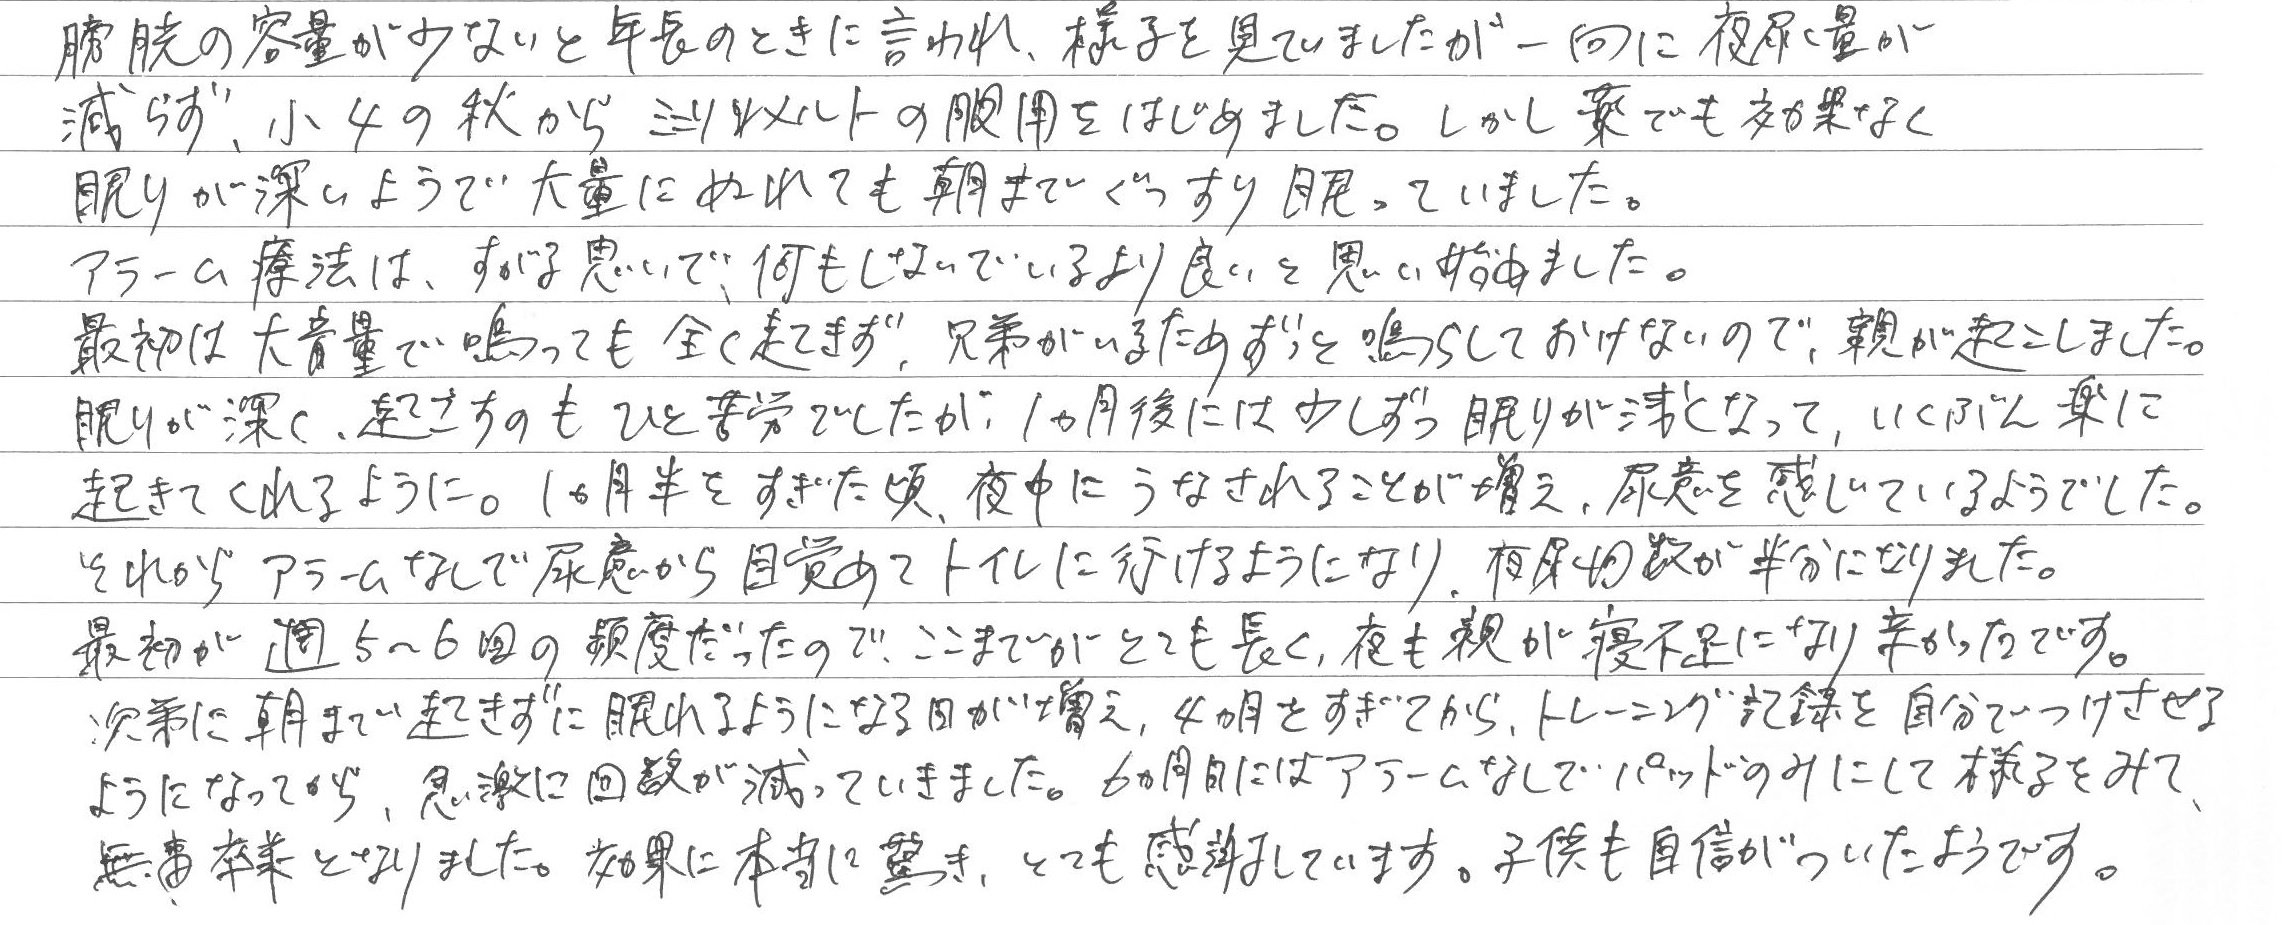 膀胱の容量が少ないと年長のときに言われ、様子を見ていましたが一向に夜尿量が
減らず、小4の秋からミニリンメルトの服用をはじめました。しかし薬でも効果なく
眠りが深いようで大量にぬれても朝までぐっすり眠っていました。
アラーム療法は、すがる思いで、何もしないでいるより良いと思い始めました。
最初は大音量で鳴っても全く起きず、兄弟がいるためずっと鳴らしておけないので、親が起こしました。
眠りが深く、起こすのもひと苦労でしたが、1ヵ月後には少しずつ眠りが浅くなって、いくぶん楽に
起きてくれるように。1ヵ月半をすぎた頃、夜中にうなされることが増え、尿意を感じているようでした。
それからアラームなしで尿意から目覚めてトイレに行けるようになり、夜尿回数が半分になりました。
最初が週5〜6回の頻度だったので、ここまでがとても長く、夜も親が寝不足になり辛かったです。
次第に朝まで起きずに眠れるようになる日が増え、4ヵ月をすぎてから、トレーニング記録を自分でつけさせる
ようになってから、急激に回数が減っていきました。6ヵ月目にはアラームなしでパッドのみにして様子をみて、
無事卒業となりました。効果に本当に驚き、とても感謝しています。子供も自信がついたようです。